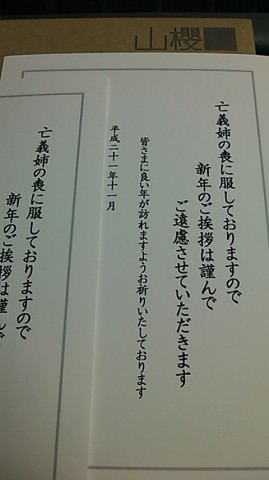 山櫻
亡義姉の喪に服しておりますので
新年のご挨拶は謹んで
ご遠慮させていただきます
皆さまに良い年が訪れますようお祈りいたしております
平成二十一年十一月
亡義姉の喪に服しておりますので
新年のご挨拶は謹んで